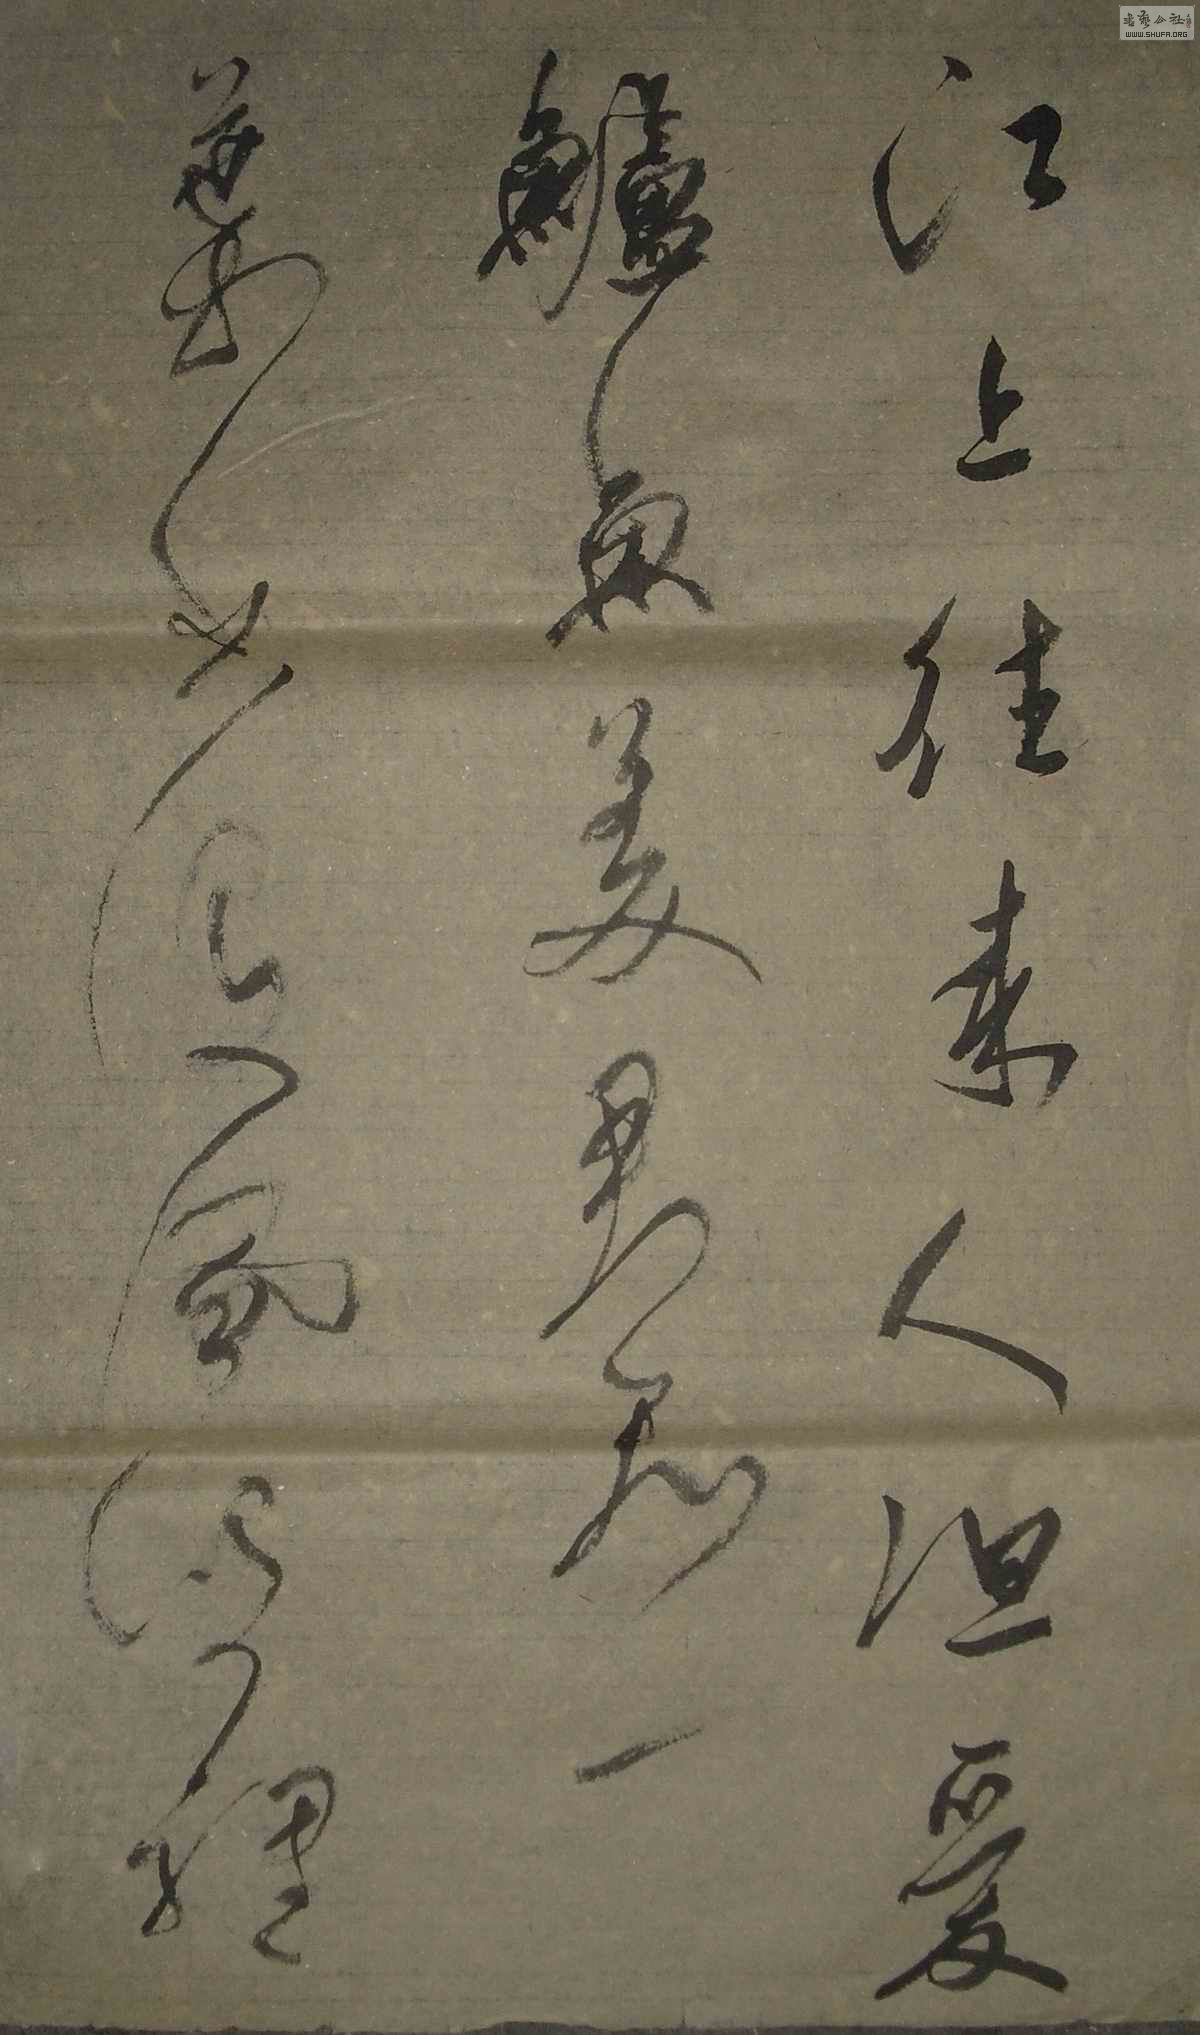 江上往来人但爱
鱸魚美君看一
葉舟出没風波裡
書藝公社
WWW.SHUFA.ORG